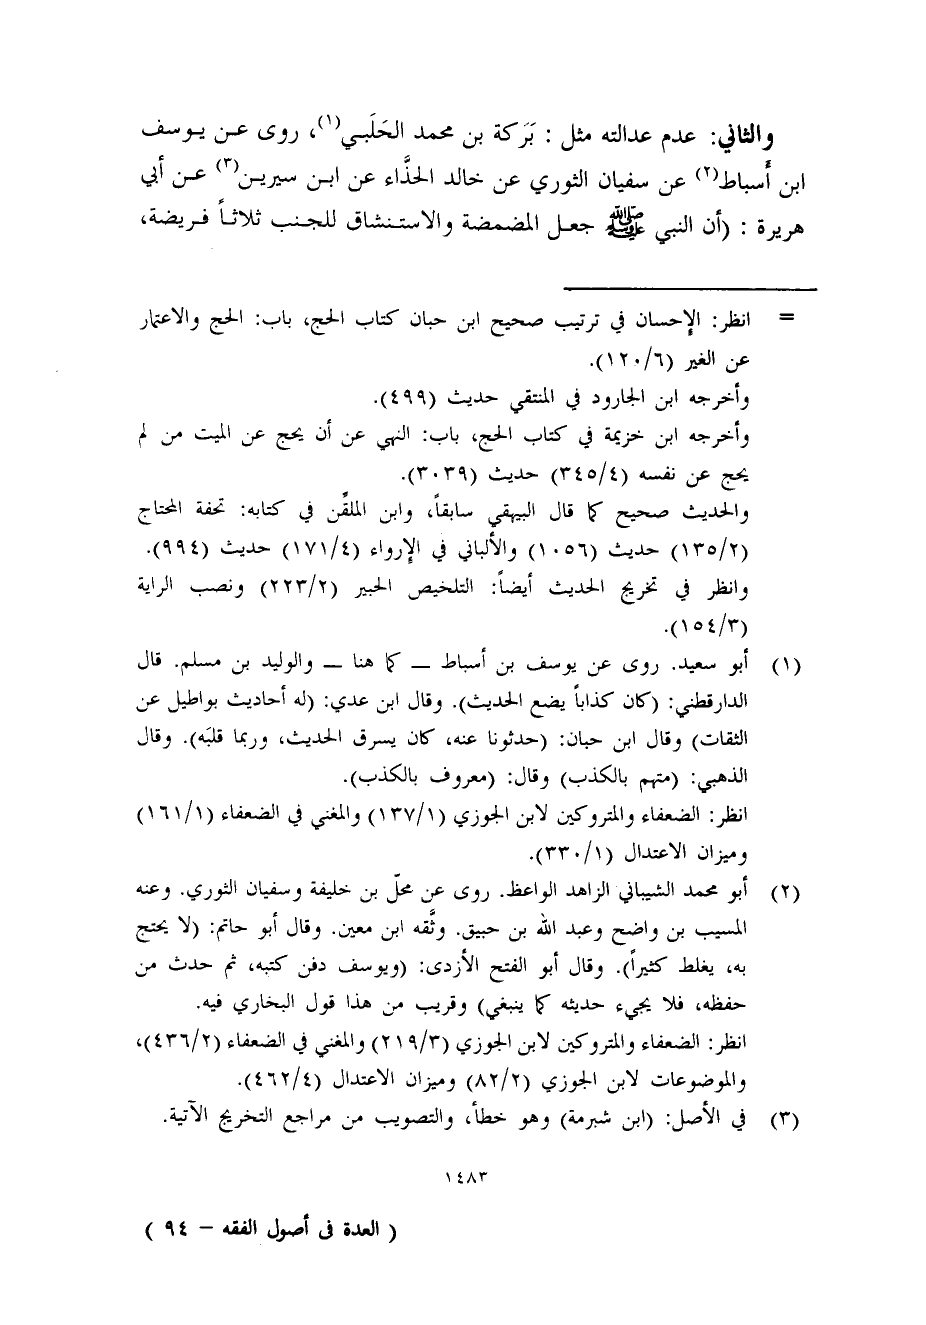 والثاني: عدم عدالته مثل : بَرَكة بن محمد الحَلَبي(١)، روى عن يوسف
ابن أَسباط(٢) عن سفيان الثوري عن خالد الحذَّاء عن ابن سيرين(٣) عن أبي
هريرة : (أن النبي ﷺ جعل المضمضة والاستنشاق للجنب ثلاثاً فريضة،
= انظر: الإحسان في ترتيب صحيح ابن حبان كتاب الحج، باب: الحج والاعتمار
عن الغير (١٢٠/٦).
وأخرجه ابن الجارود في المنتقي حديث (٤٩٩).
وأخرجه ابن خزيمة في كتاب الحج، باب: النهي عن أن يحج عن الميت من لم
يحج عن نفسه (٣٤٥/٤) حديث (٣٠٣٩).
والحديث صحيح كما قال البيهقي سابقاً، وابن الملقِّن في كتابه: تحفة المحتاج
(١٣٥/٢) حديث (١٠٥٦) والألباني في الإرواء (١٧١/٤) حديث (٩٩٤).
وانظر في تخريج الحديث أيضاً: التلخيص الحبير (٢٢٣/٢) ونصب الراية
(١٥٤/٣).
(١) أبو سعيد. روى عن يوسف بن أسباط — كما هنا — والوليد بن مسلم. قال
الدارقطني: (كان كذاباً يضع الحديث). وقال ابن عدي: (له أحاديث بواطيل عن
الثقات) وقال ابن حبان: (حدثونا عنه، كان يسرق الحديث، وربما قلبَه). وقال
الذهبي: (متهم بالكذب) وقال: (معروف بالكذب).
انظر: الضعفاء والمتروكين لابن الجوزي (١٣٧/١) والمغني في الضعفاء (١٦١/١)
وميزان الاعتدال (٣٣٠/١).
(٢) أبو محمد الشيباني الزاهد الواعظ. روى عن محلّ بن خليفة وسفيان الثوري. وعنه
المسيب بن واضح وعبد الله بن حبيق. وثَّقه ابن معين. وقال أبو حاتم: (لا يحتج
به، يغلط كثيراً). وقال أبو الفتح الأزدى: (ويوسف دفن كتبه، ثم حدث من
حفظه، فلا يجيء حديثه كما ينبغي) وقريب من هذا قول البخاري فيه.
انظر: الضعفاء والمتروكين لابن الجوزي (٢١٩/٣) والمغني في الضعفاء (٤٣٦/٢)،
والموضوعات لابن الجوزي (٨٢/٢) وميزان الاعتدال (٤٦٢/٤).
(٣) في الأصل: (ابن شبرمة) وهو خطأ، والتصويب من مراجع التخريج الآتية.
١٤٨٣
( العدة فى أصول الفقه – ٩٤ )